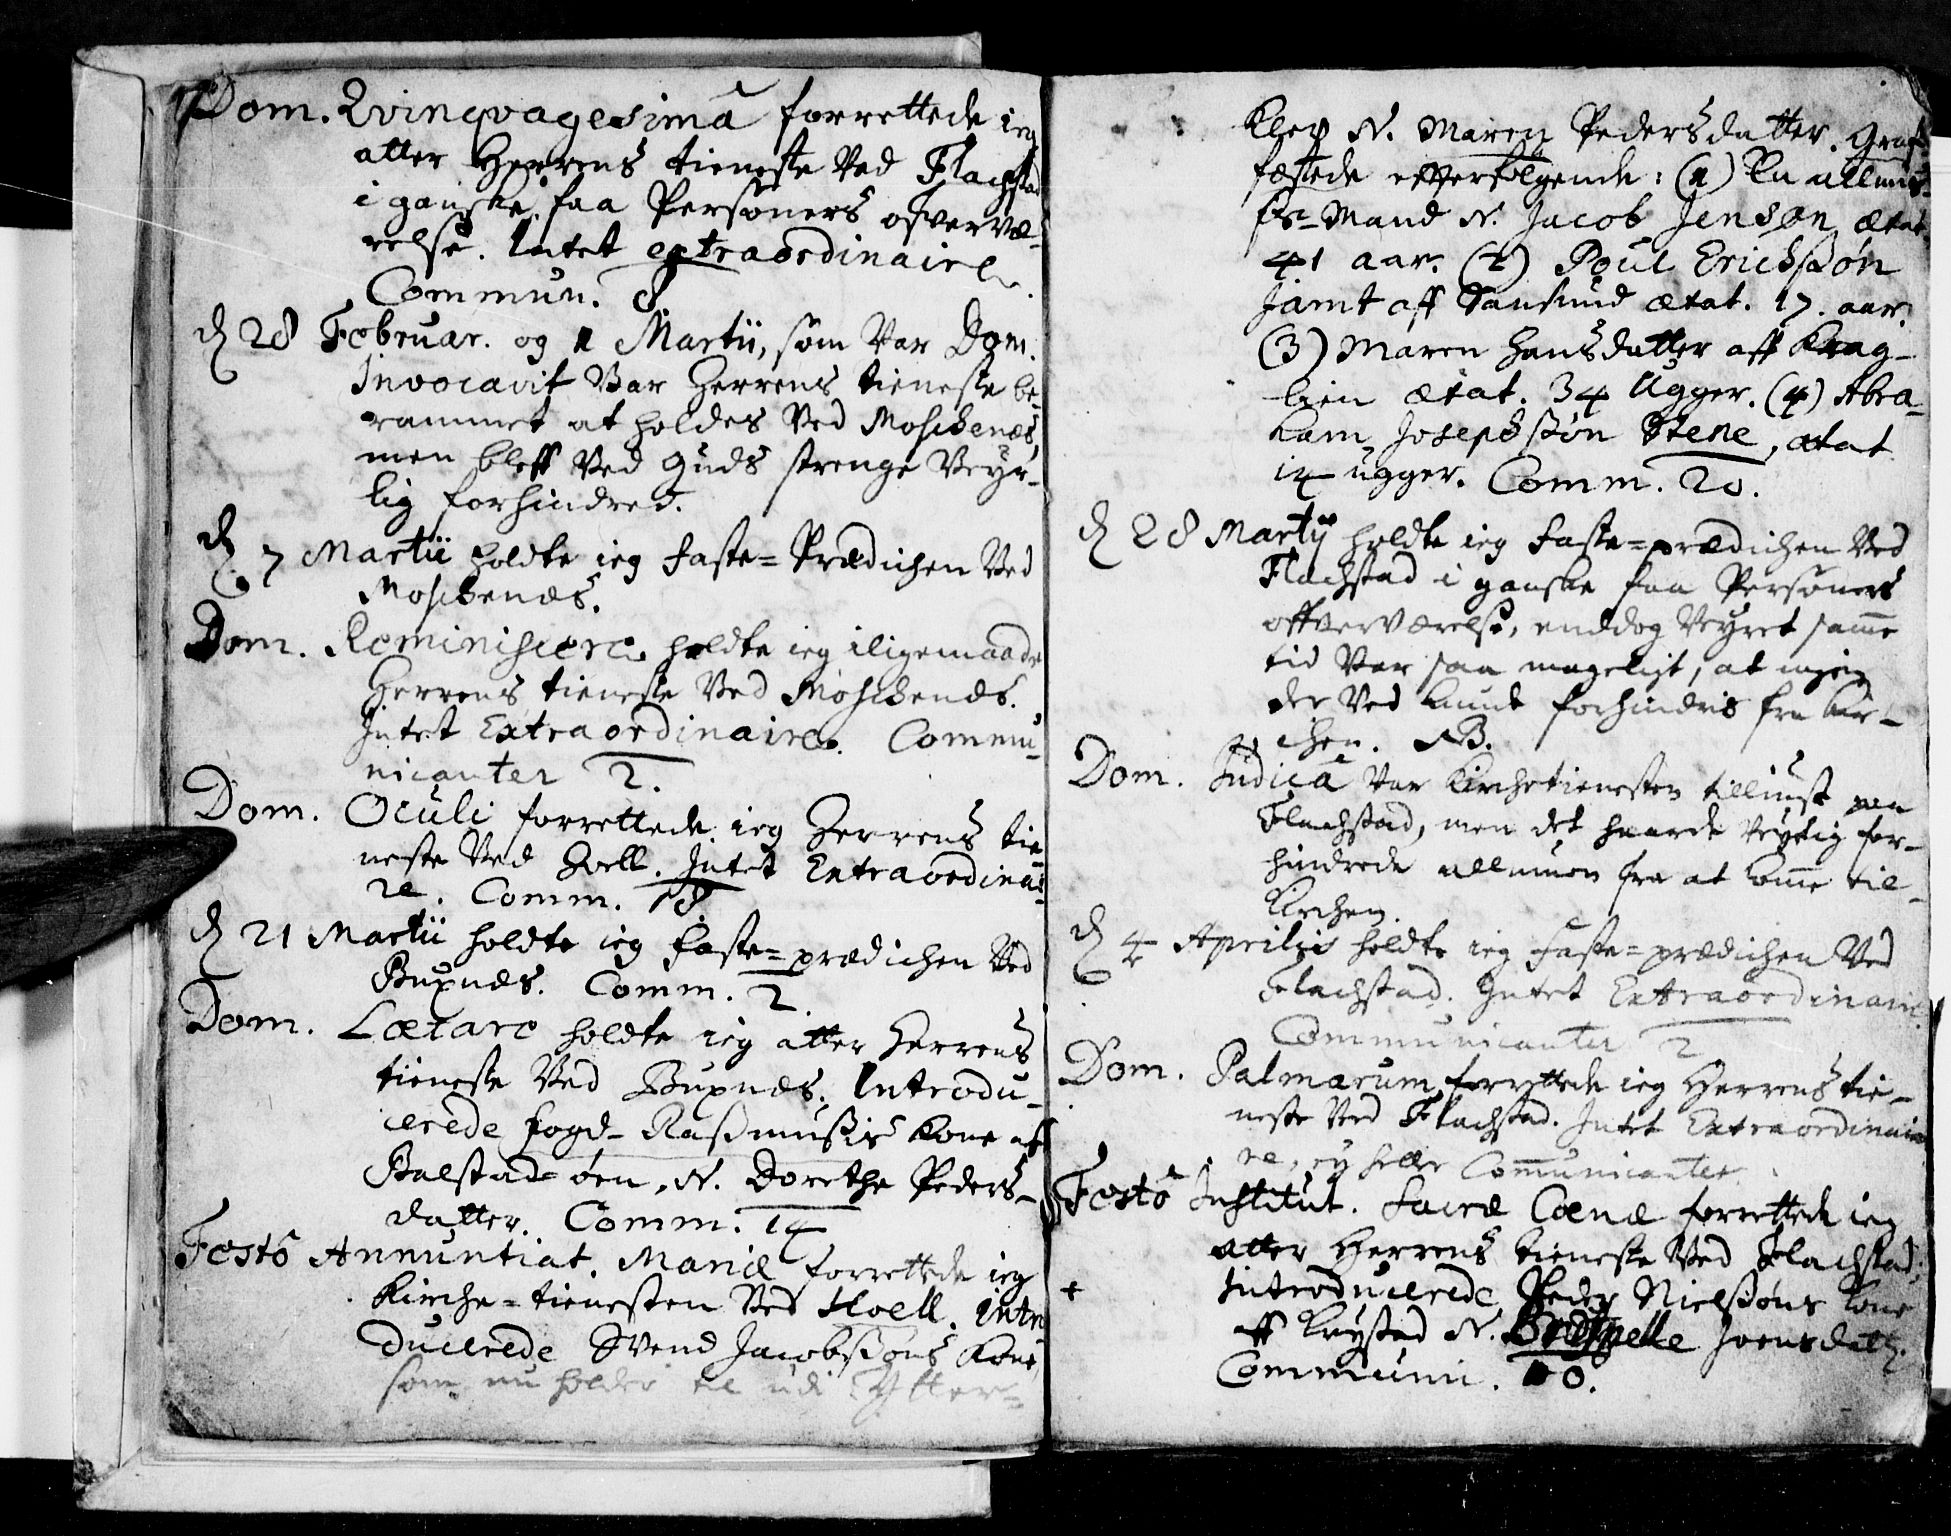 Dom. Qvinqvagesima forrettede ieg
atter Herrens tieneste Ved Flachstad
i ganske faa Personers ofvervæ-
relse. Intet extraordinaire
Commun. 8
D 28 Februar. og 1 Martii, som Var Dom.
Invocavit Var Herrens tieneste be-
rammet at holdes Ved Moschenæs,
men bleff Ved Guds strenge Veyr-
lig forhindred.
D 7 Martii holdte ieg Faste-Prædichen Ved
Moschenæs.
Dom. Reminiscere holdte ieg iligemaade
Herrens tieneste Ved Moschenæs.
Intet Extraordinaire. Commu-
nicanter 2.
Dom. Oculi forrettede ieg Herrens tie-
neste Ved Hoell. Intet Extraordinai-
re. Comm. 18
D 21 Martii holdte ieg Faste-prædichen Ved
Buxnæs. Comm. 2
Dom. Lætare holdte ieg atter Herrens
tieneste Ved Buxnæs. Introdu-
cerede Fogd-Rasmusis Kone aff
Balstad-øen, N. Dorethe Peders-
datter. Comm. 14
Festô Annuntiat. Mariæ forrettede ieg
Kirche-tienesten Ved Hoell. Intro-
ducerede Svend Jacobsøns Kone,
som nu holder til udi Ytter-
Klep N. Maren Pedersdatter. Graf-
fæstede effterfølgende: (1) En allmis-
se-Mand N. Jacob Jensøn ætat.
41 aar. (2) Poul Erichsøn
Jamt aff Sansund ætat. 17. aar.
(3) Maren Hansdatter aff Krag-
lien ætat. 34 Ugger. (4) Abra-
ham Josephsøn Stene, ætat
14 ugger. Comm. 20.
D 28 Martij holdte ieg Faste-prædichen Ved
Flachstad i ganske faa Personers
offverværelse, enddog Veyret samme
tid Var saa mageligt, at ingen
der Ved kunde forhindris fra Kir-
chen. NB.
Dom. Judica Var Kirchetienesten tillyust paa
Flachstad, men det haarde Veyrlig for-
hindrede allmuen fra at komme til
Kirchen.
D 4 Aprilis holdte ieg Faste-prædichen Ved
Flachstad. Intet Extraordinaire.
Communicanter 2
Dom. Palmarum forrettede ieg Herrens tie-
neste Ved Flachstad. Intet Extraordinai-
re, ey heller Communicanter
Festô Institut. Sacræ Cœnæ forrettede ieg
atter Herrens tieneste Ved Flachstad;
Introducerede Peder Nielsøns Kone
aff N. Joensdatt.
Communi. 10.